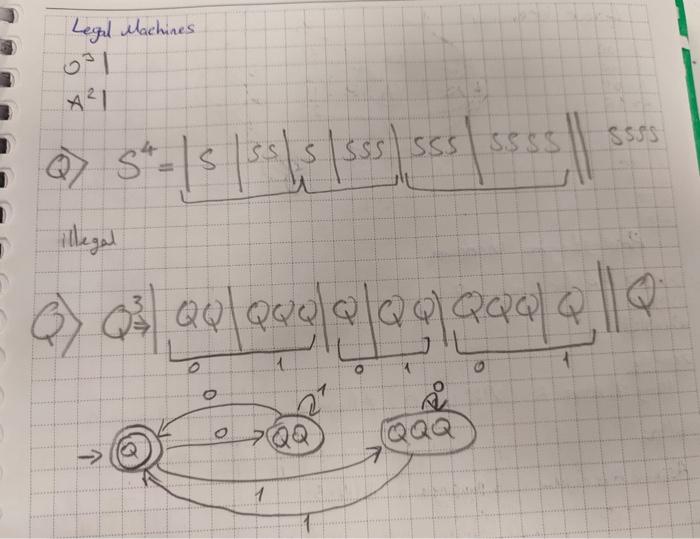 Legal Machines
O³|
A²|
Q> S⁴ = | S | SS | S | SSS | SSS | SSSS || SSSS
illegal
Q> Q³ ⇒ | QQ | QQQ | Q | QQ | QQQ | Q || Q
0 1 0 1 0 1
0 1 0
→ Q 0 QQ QQQ
1
1